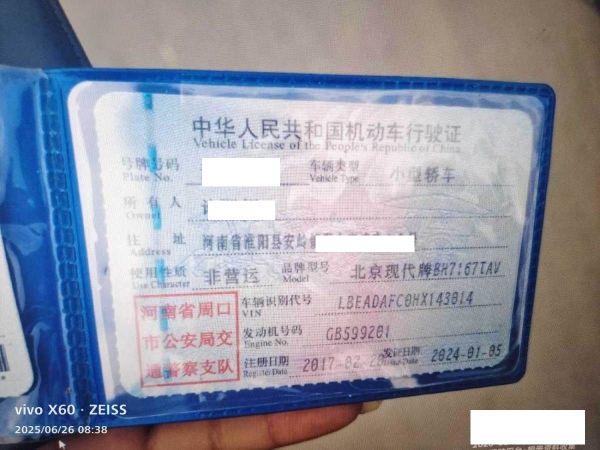 中华人民共和国机动车行驶证
Vehicle License of the People's Republic of China
号牌号码
Plate No.
车辆类型 小型轿车
Vehicle Type
所有人
Owner
住址 河南省淮阳县安岭
Address
使用性质 非营运
Use Character
品牌型号 北京现代牌BH7167TAV
Model
河南省周口
市公安局交
通警察支队
车辆识别代号 LBEADAFC0HX143014
VIN
发动机号码 GB599201
Engine No.
注册日期 2017-02-20
Register Date
发证日期 2024-01-05
Issue Date
vivo X60 · ZEISS
2025/06/26 08:38